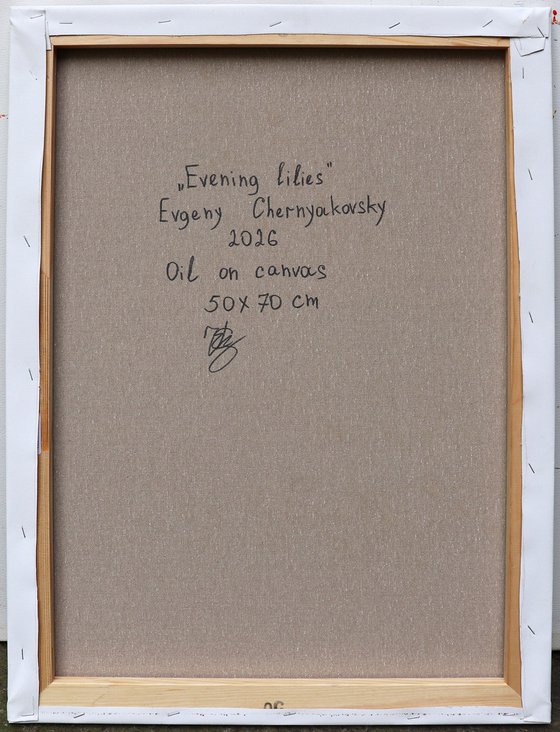 „Evening lilies"
Evgeny Chernyakovsky
2026
Oil on canvas
50x70 cm